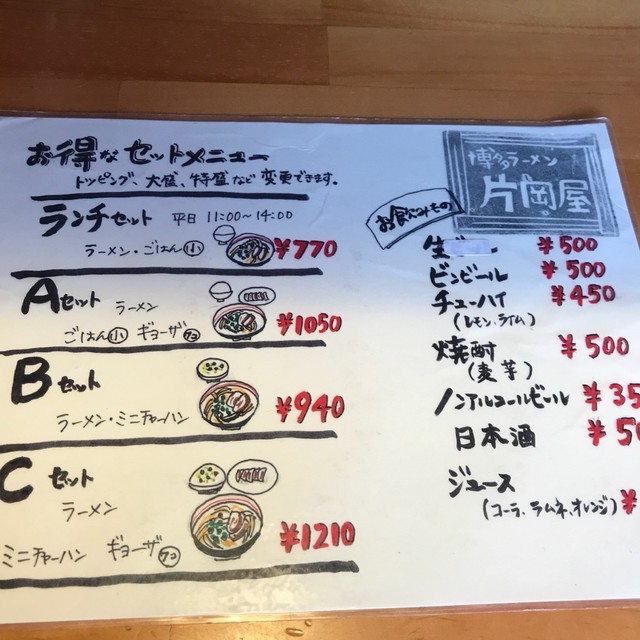 お得なセットメニュー
トッピング、大盛、特盛など変更できます。
ランチセット 平日 11:00～14:00
ラーメン・ごはん小 ¥770
Aセット ラーメン
ごはん小 ギョーザ ¥1050
Bセット
ラーメン・ミニチャーハン ¥940
Cセット
ラーメン
ミニチャーハン ギョーザ ¥1210
博多ラーメン
片岡屋
お飲みもの
生 ¥500
ビンビール ¥500
チューハイ ¥450
(レモン、ライム)
焼酎 ¥500
(麦芋)
ノンアルコールビール ¥35
日本酒
ジュース ¥
(コーラ、ラムネ、オレンジ)